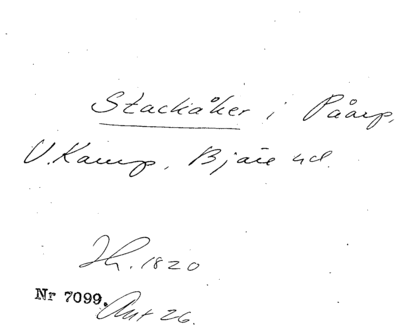 Stackåker i Påarp,
V. Karup, Bjäre hd.
Jh. 1820
Nr 7099. Ant 26.